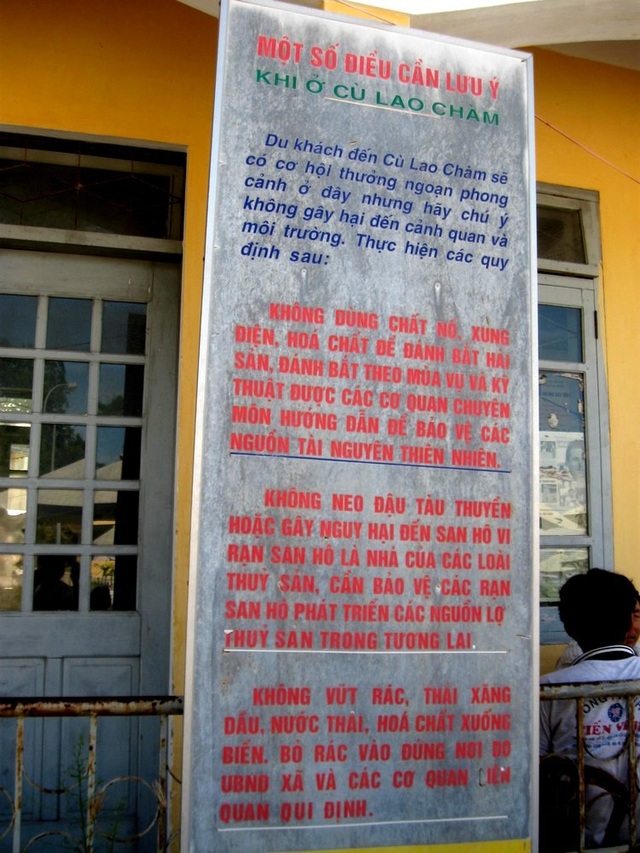 MỘT SỐ ĐIỀU CẦN LƯU Ý
KHI Ở CÙ LAO CHÀM
Du khách đến Cù Lao Chàm sẽ
có cơ hội thưởng ngoạn phong
cảnh ở đây nhưng hãy chú ý
không gây hại đến cảnh quan và
môi trường. Thực hiện các quy
định sau:
KHÔNG DÙNG CHẤT NỔ, XUNG
ĐIỆN, HOÁ CHẤT ĐỂ ĐÁNH BẮT HẢI
SẢN, ĐÁNH BẮT THEO MÙA VỤ VÀ KỸ
THUẬT ĐƯỢC CÁC CƠ QUAN CHUYÊN
MÔN HƯỚNG DẪN ĐỂ BẢO VỆ CÁC
NGUỒN TÀI NGUYÊN THIÊN NHIÊN.
KHÔNG NEO ĐẬU TÀU THUYỀN
HOẶC GÂY NGUY HẠI ĐẾN SAN HÔ VÌ
RẠN SAN HÔ LÀ NHÀ CỦA CÁC LOÀI
THUỶ SẢN, CẦN BẢO VỆ CÁC RẠN
SAN HÔ PHÁT TRIỂN CÁC NGUỒN LỢ
THUỶ SẢN TRONG TƯƠNG LAI.
KHÔNG VỨT RÁC, THẢI XĂNG
DẦU, NƯỚC THẢI, HOÁ CHẤT XUỐNG
BIỂN. BỎ RÁC VÀO ĐÚNG NƠI DO
UBND XÃ VÀ CÁC CƠ QUAN LIÊN
QUAN QUI ĐỊNH.